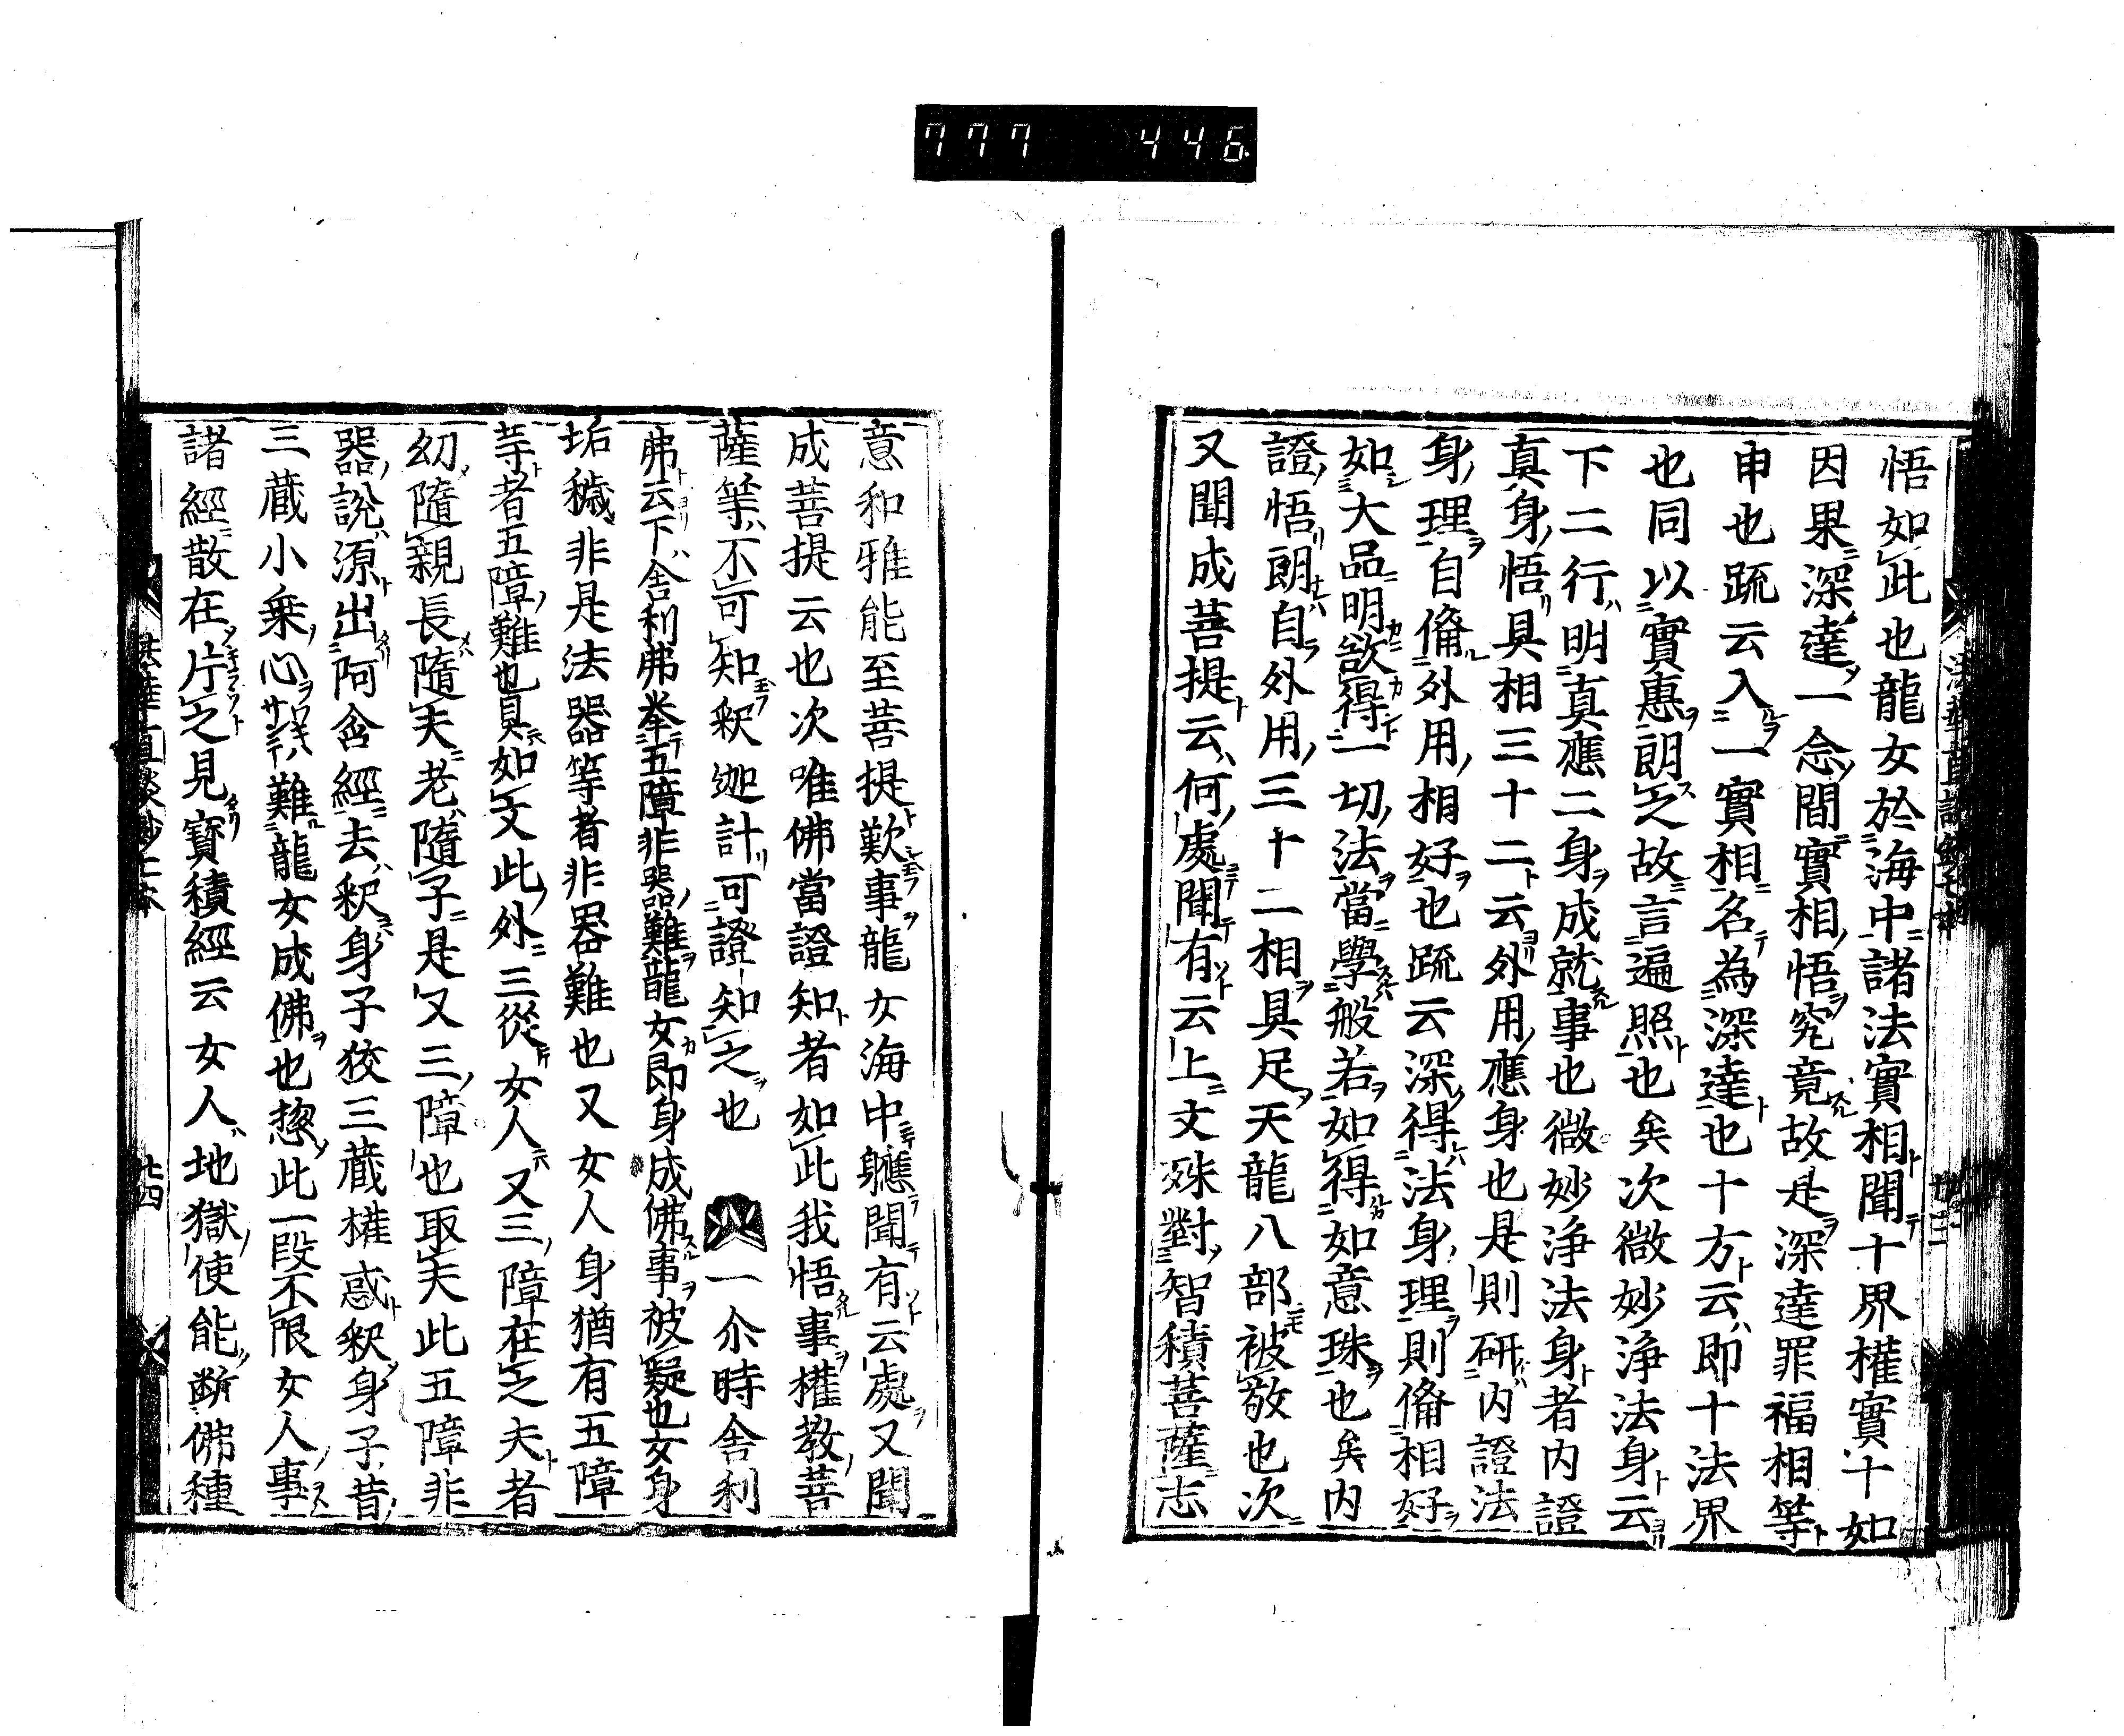 777 446
悟如此也龍女於海中諸法實相聞十界權實十如
因果深達一念間實相悟究竟故是深達罪福相等
申也䟽云入一實相名為深達也十方云即十法界
也同以實惠朗之故言遍照也矣次微妙浄法身云
下二行明真應二身成就事也微妙浄法身者内證
真身悟具相三十二云外用應身也是則研内證法
身理自俻外用相好也䟽云深得法身理則俻相好
如大品明欲得一切法當學般若如得如意珠也矣内
證悟朗自外用三十二相具足天龍八部被敬也次
又聞成菩提云何處聞有云上文殊對智積菩薩志
意和雅能至菩提歎事龍女海中聽聞有云處又聞
成菩提云也次唯佛當證知者如此我悟事權教菩
薩等不可知釈迦計可證知之也 一尒時舎利
弗云下舎利弗挙五障非器難龍女即身成佛事被疑也女身
垢穢非是法器等者非器難也又女人身猶有五障
等者五障難也具如文此外三從女人又三障在之夫者
幻隨親長隨夫老隨子是又三障也取夫此五障非
器說源出阿含經去釈身子狡三蔵權惑釈身子昔
三蔵小乗心難龍女成佛也惣此一段不限女人事
諸經散在片之見寶積經云女人地獄使能断佛種
廿四